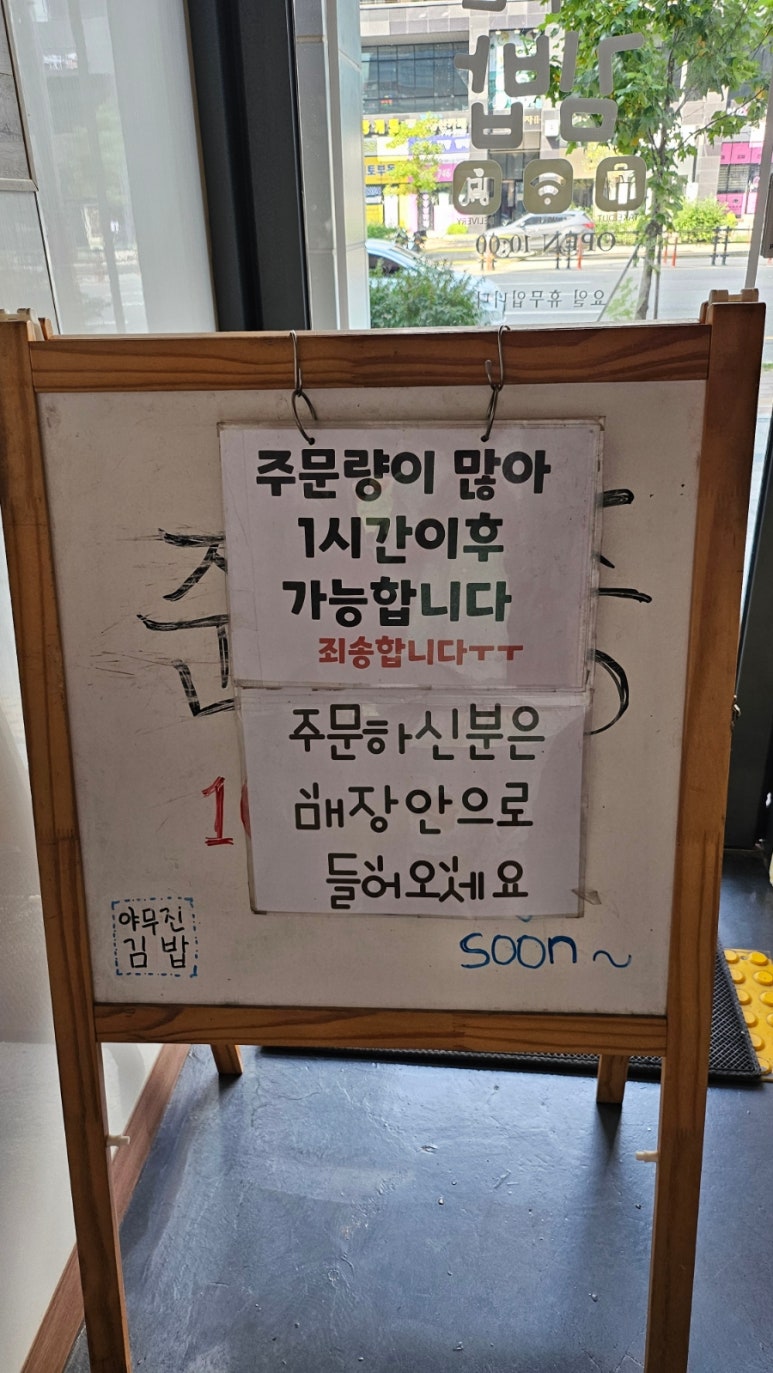 김밥
OPEN 10:00
요일 휴무입니다
주문량이 많아
1시간이후
가능합니다
죄송합니다ㅜㅜ
주문하신분은
매장안으로
들어오세요
야무진
김밥
soon~